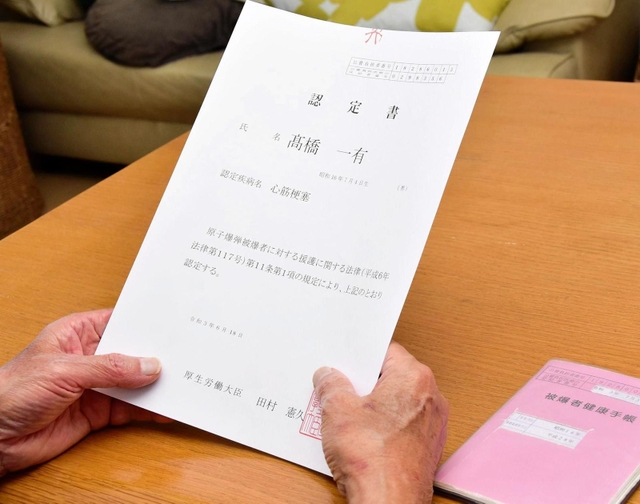 認定書
氏名 髙橋 一有
認定疾病名 心筋梗塞
原子爆弾被爆者に対する援護に関する法律(平成6年
法律第117号)第11条第1項の規定により、上記のとおり
認定する。
令和3年6月18日
厚生労働大臣 田村 憲久
被爆者健康手帳